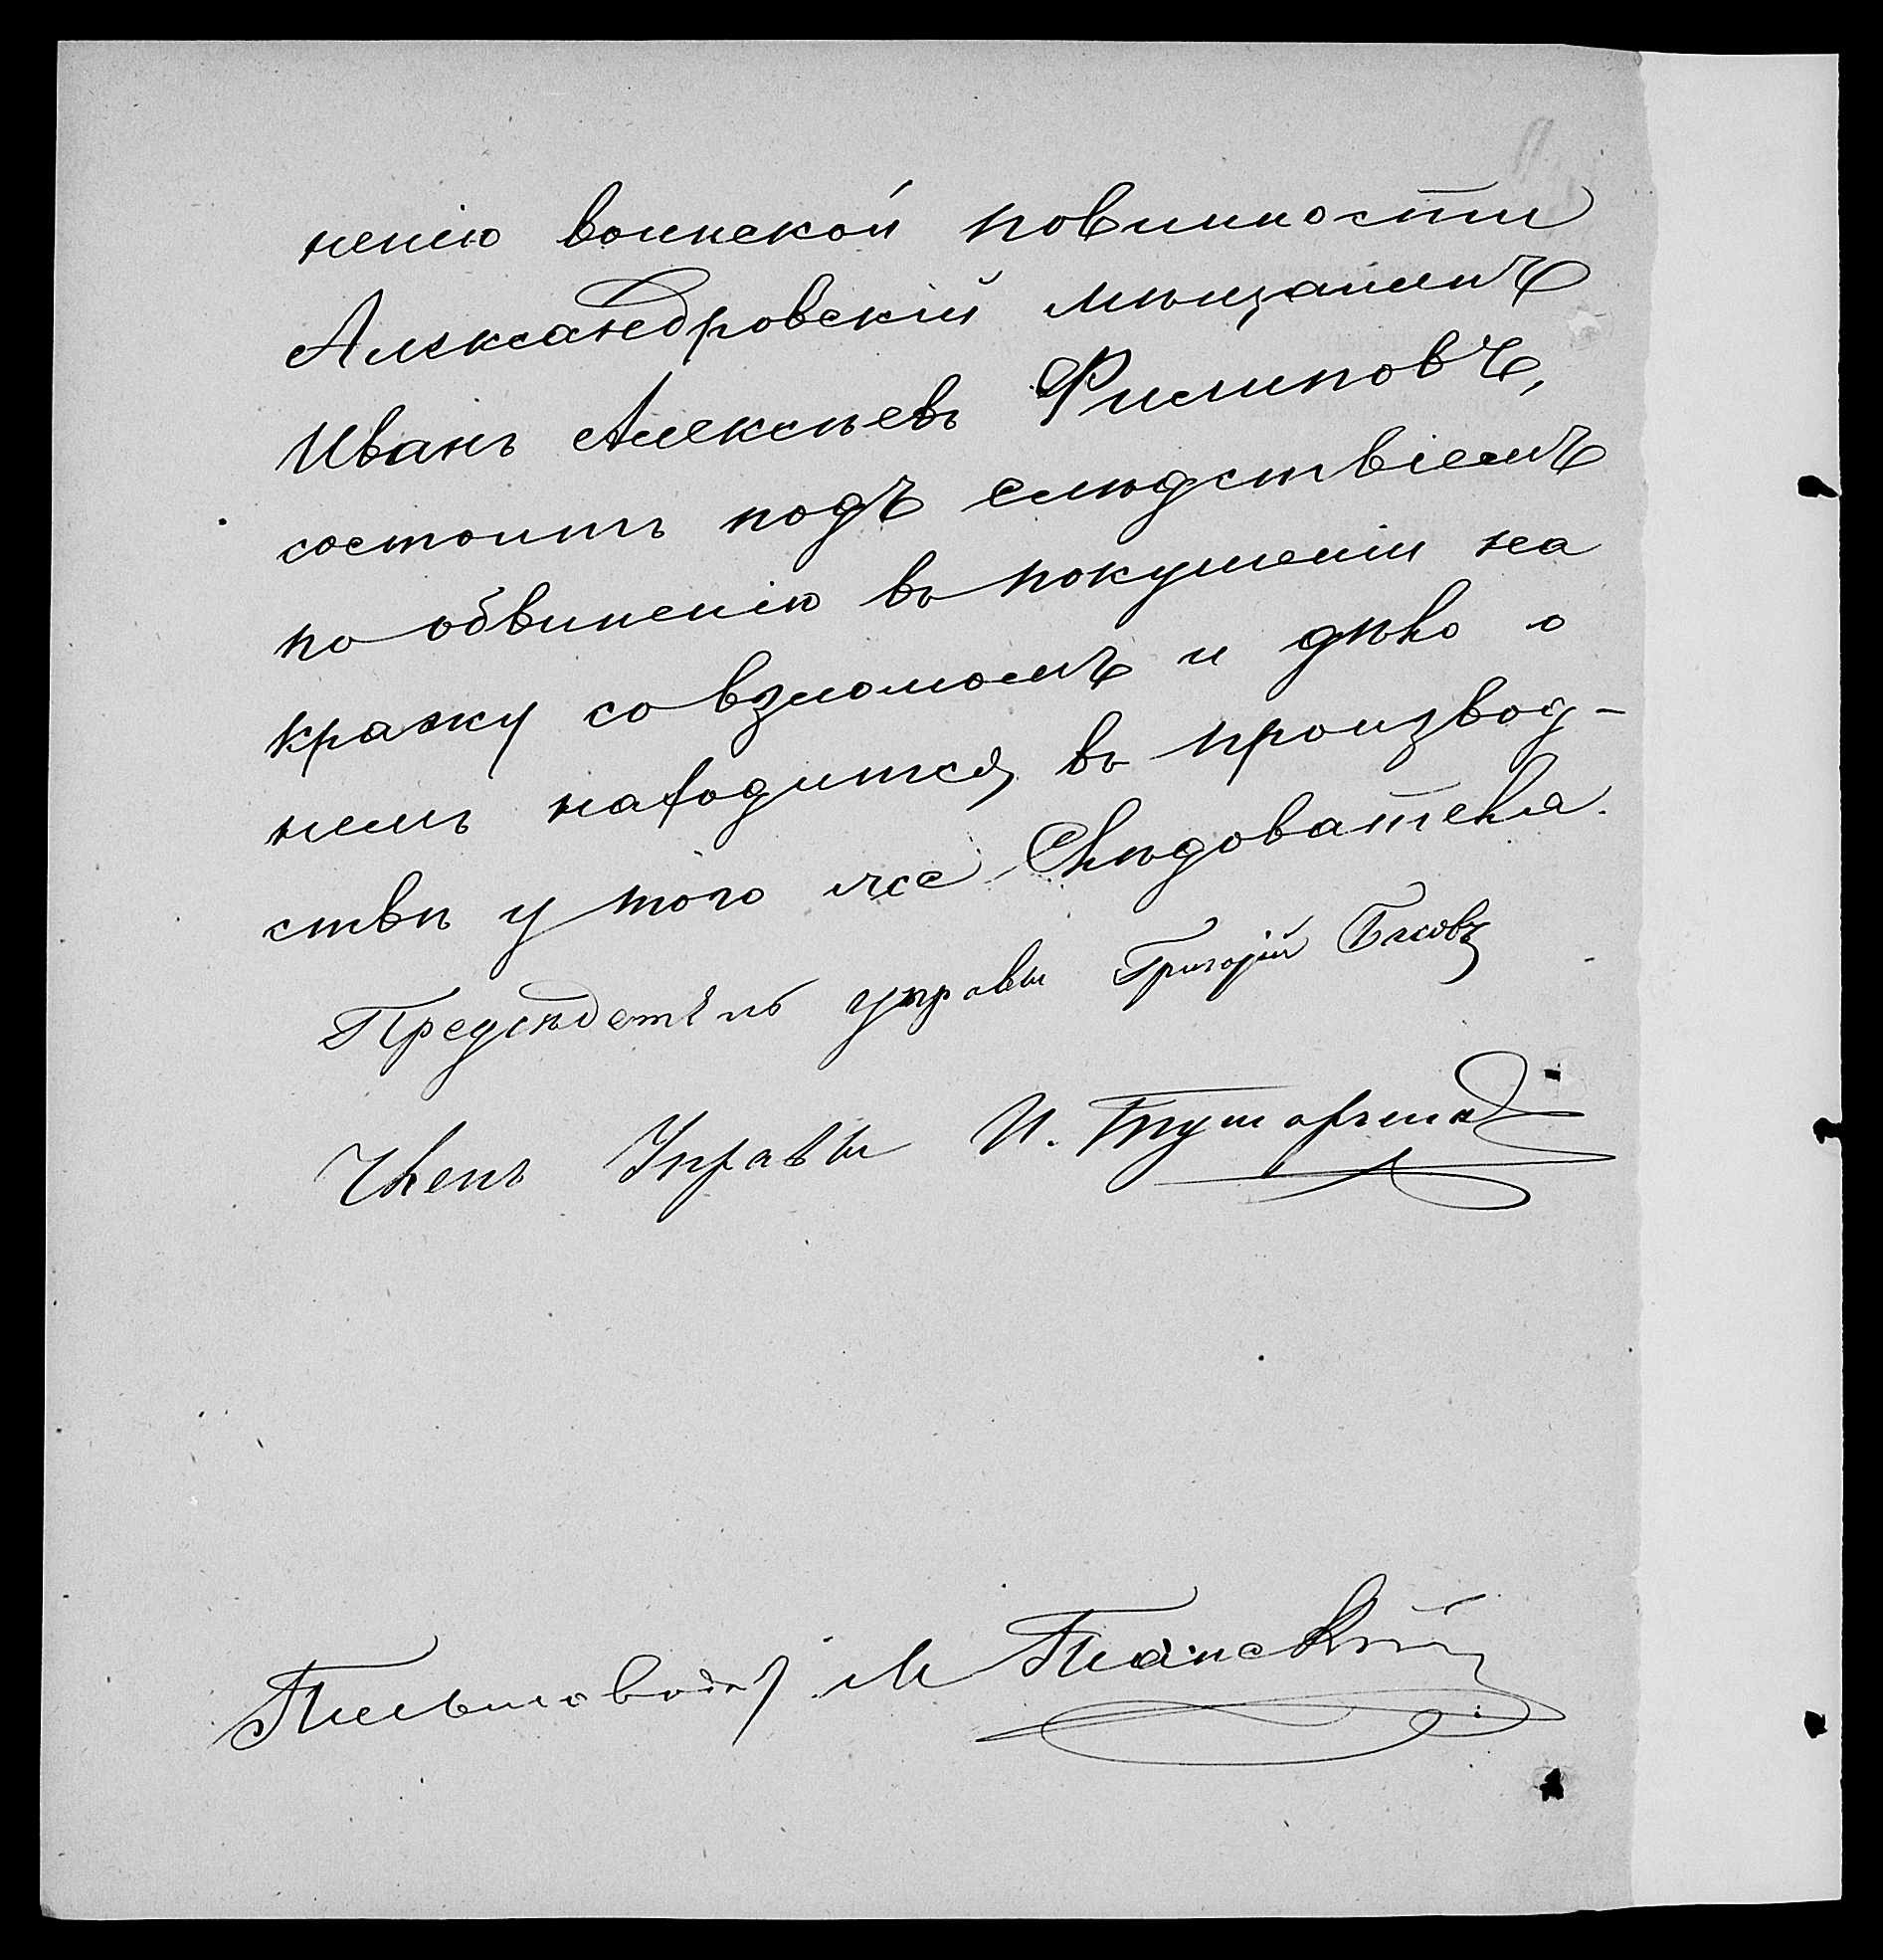 ненію воинской повинности
Александровскій мѣщанинъ
Иванъ Алексѣевъ Филиповъ,
состоитъ подъ слѣдствіемъ
по обвиненію въ покушеніи на
кражу со взломомъ и дѣло о
немъ находится въ производ-
ствѣ у того же Слѣдователя.
Предсѣдатель управы Григорій
Членъ Управы И.
М